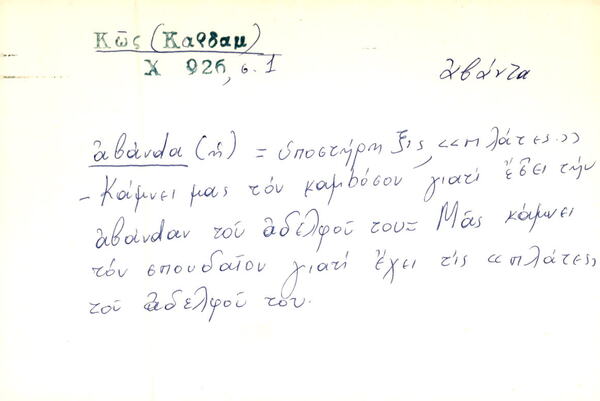 Κῶς (Καρδαμ)
Χ 926, σ. 1
ἀβάντα
ἀβάνdα (ἡ) = ὑποστήριξις, «πλάτες»
- Κάμνει μας τὸν καμbόσον γιατὶ ἔσει τὴν
ἀβάνdαν τοῦ ἀδελφοῦ του = Μᾶς κάμνει
τὸν σπουδαῖον γιατὶ ἔχει τὶς «πλάτες»
τοῦ ἀδελφοῦ του.